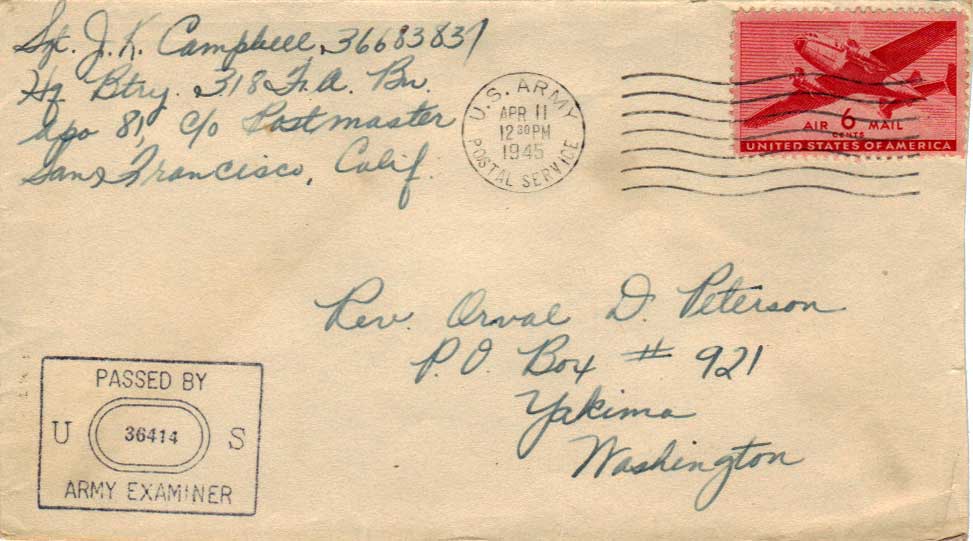 Sgt. J. K. Campbell, 36683837
Hq Btry. 318 F. A. Bn.
Apo 81, c/o Postmaster
San Francisco, Calif.
U.S. ARMY
APR 11
12 30 PM
1945
POSTAL SERVICE
AIR 6 MAIL
CENTS
UNITED STATES OF AMERICA
Rev. Orval D. Peterson
P.O. Box # 921
Yakima
Washington
PASSED BY
U 36414 S
ARMY EXAMINER